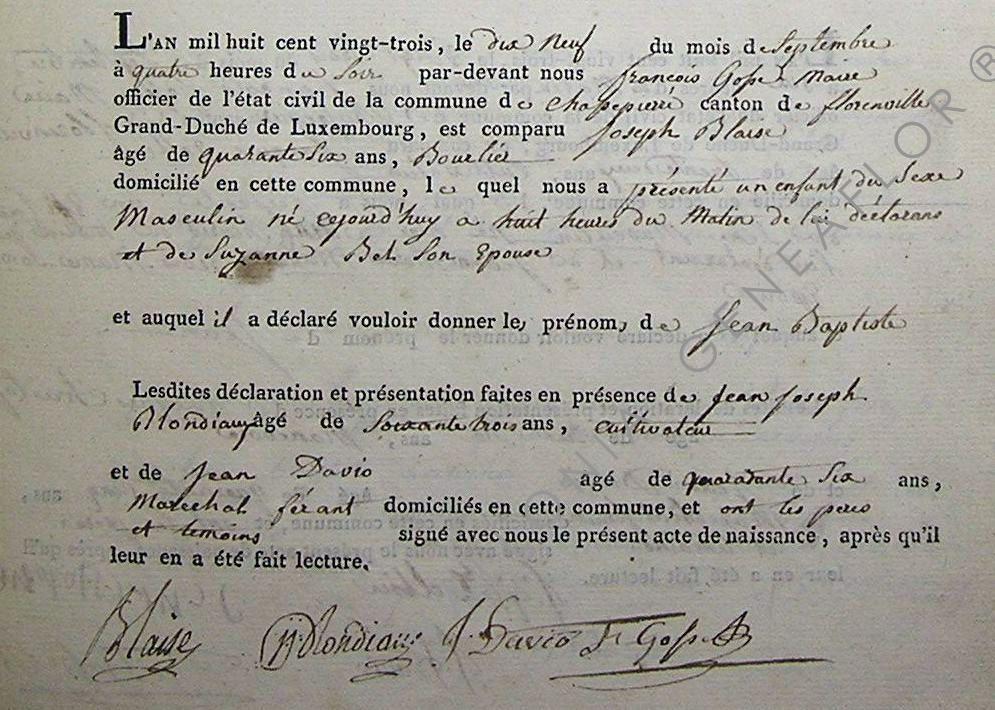 L'AN mil huit cent vingt-trois, le dix Neuf du mois de Septembre
à quatre heures de Soir par-devant nous françois Gosse Maire
officier de l'état civil de la commune de Chapepierre canton de florenville
Grand-Duché de Luxembourg, est comparu Joseph Blaise
âgé de quarante Six ans, Bourlier
domicilié en cette commune, le quel nous a présenté un enfant du Sexe
Masculin né cejourd'huy a huit heures du Matin de lui déclarans
et de Suzanne Bch Son Epouse
et auquel il a déclaré vouloir donner les prénoms de Jean Baptiste
Lesdites déclaration et présentation faites en présence de Jean Joseph
Blondiaux âgé de Soixante trois ans, cultivateur
et de Jean Davio agé de quaradante Six ans,
Marechal férant domiciliés en cette commune, et ont les peres
et temoins signé avec nous le présent acte de naissance, après qu'il
leur en a été fait lecture.
Blaise JJ Blondiaux J. Davio fr Gosse
GENEAFLOR ®